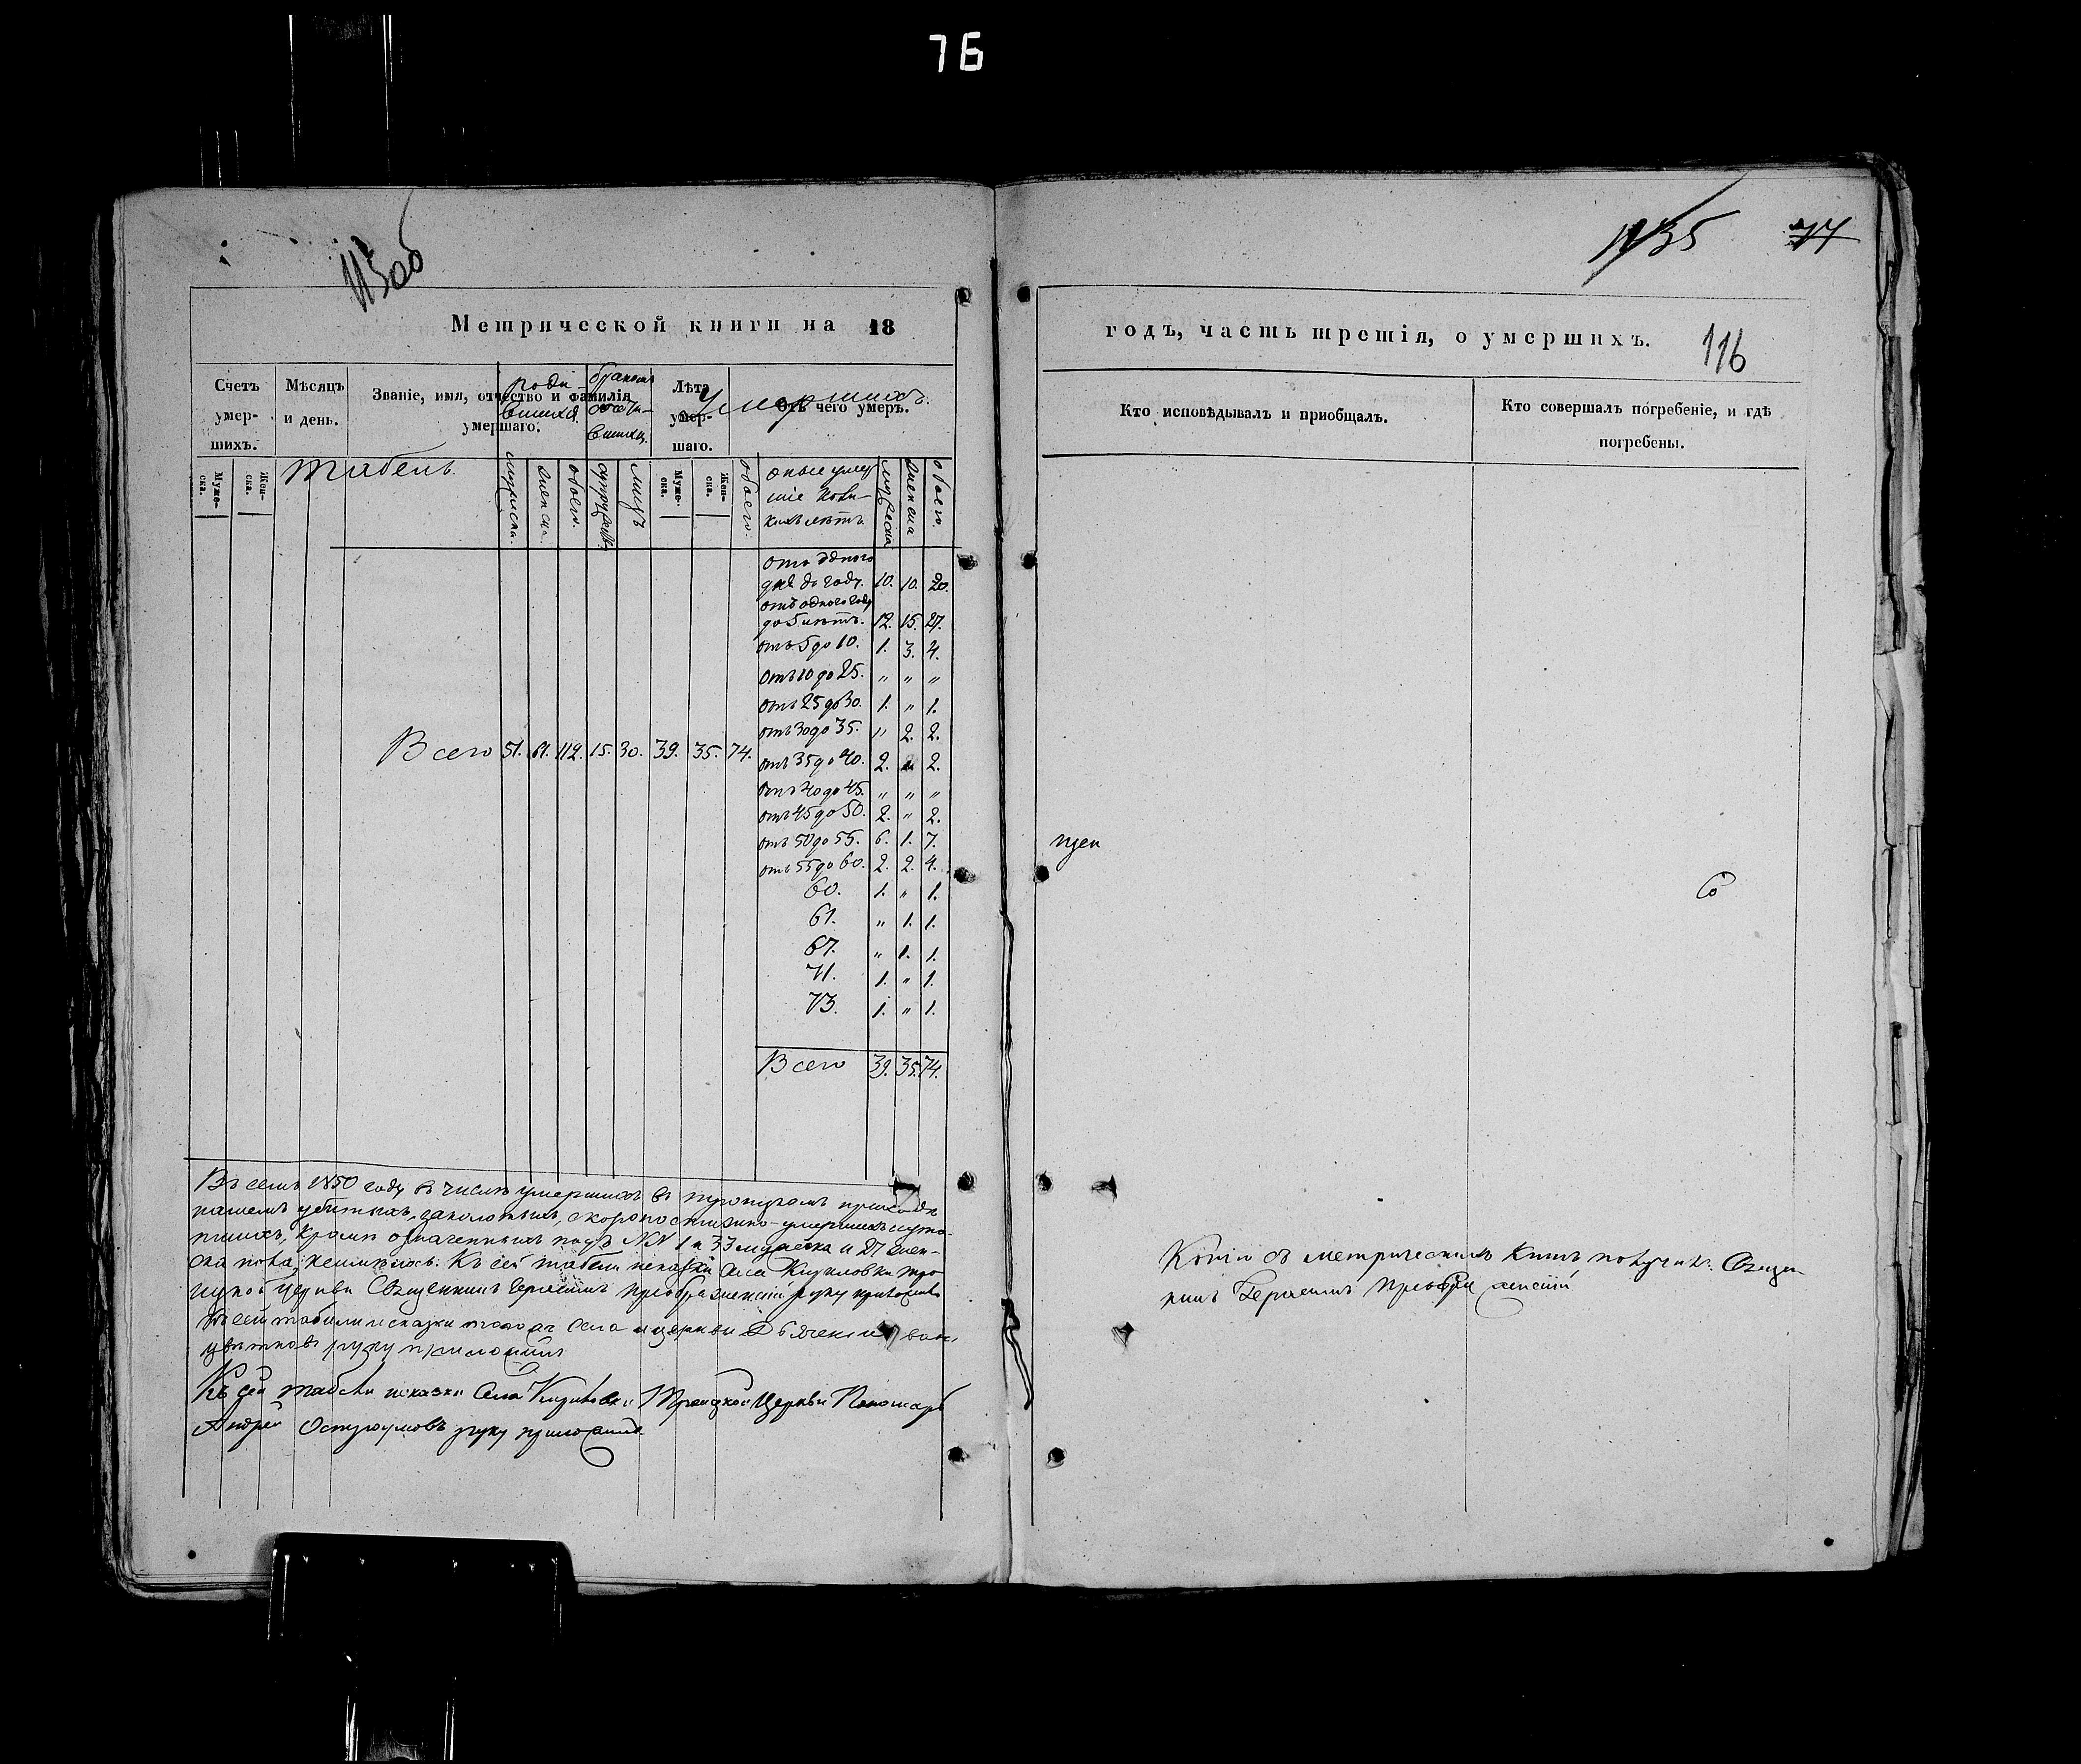 76
115об
Метрической книги на 18
Счетъ умер-шихъ.
Мѣсяцъ и день.
Званіе, имя, отчество и фамилія умершаго.
роди-вшихся
бракомъ сочета-вшихся
Лѣта умер-шаго.
Отъ чего умеръ.
Умершихъ.
Муже-ска.
Жен-ска.
Табель
мужеска.
женска.
обоего.
супружествъ
лицъ
Муже-ска.
Жен-ска.
обоего.
оные умер
шіе
какихъ лѣтъ
мужеска
женска
обоего.
отъ одного
дня до году. 10. 10. 20.
отъ одного году
до 5 лѣтъ. 12. 15. 27.
отъ 5 до 10. 1. 3. 4.
отъ 10 до 25. " " "
отъ 25 до 30. 1. " 1.
отъ 30 до 35. " 2. 2.
Всего 51. 61. 112. 15. 30. 39. 35. 74.
отъ 35 до 40. 2. " 2.
отъ 40 до 45. " " "
отъ 45 до 50. 2. " 2.
отъ 50 до 55. 6. 1. 7.
отъ 55 до 60. 2. 2. 4.
60. 1. " 1.
61. " 1. 1.
67. " 1. 1.
71. 1. " 1.
73. 1. " 1.
Всего 39. 35. 74.
Въ семъ 1850 году въ числѣ умершихъ въ приходѣ
нашемъ убитыхъ, заколотыхъ, скоропостижно-умершихъ
кромѣ означенныхъ подъ NN 1 и 33 мужеска и 27 жен-
ска пола, неимѣлось. Къ сей табели Села
церкви Священникъ Герасимъ Преображенскій руку приложилъ
Къ сей табели и сказки тогожъ Села и церкви Дьячекъ
руку приложилъ
Къ сей табели и сказки Села Троицкой Церкви Пономарь
Андрей Остроумовъ руку приложилъ.
77
116
годъ, часть третія, о умершихъ.
Кто исповѣдывалъ и пріобщалъ.
Кто совершалъ погребеніе, и гдѣ погребены.
Копію съ метрическихъ книгъ получилъ Священ-
никъ Герасимъ Преображенскій